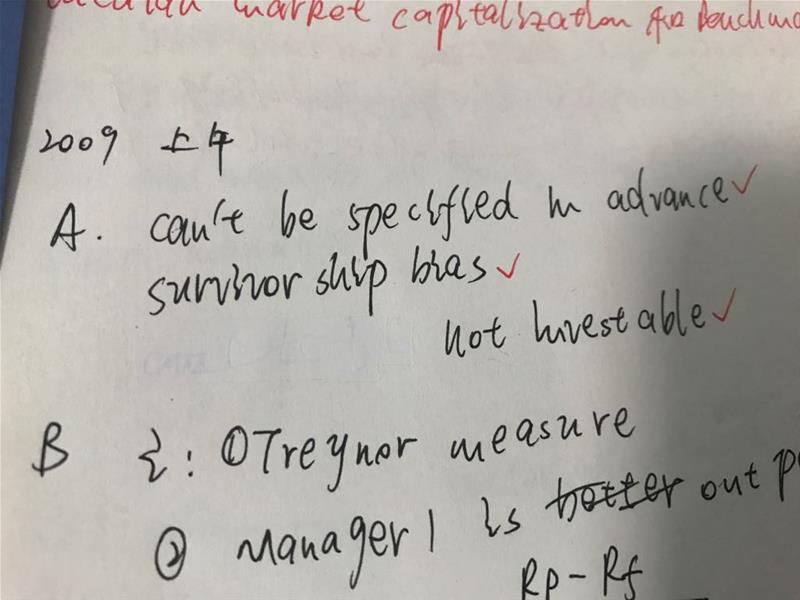 market capitalization for benchma
2009 上午
A. can't be specified in advance✓
survivorship bias✓
not investable✓
B i: ① Treynor measure
② Manager 1 is better out p
Rp - Rf